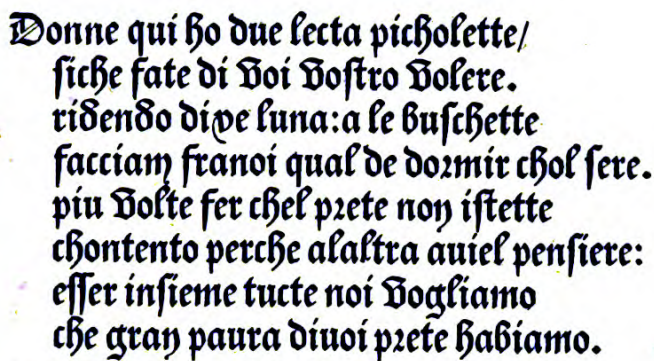 Donne qui ho due lecta picholette/
siche fate di voi vostro volere.
ridendo dixe luna: a le buschette
facciam franoi qual de dormir chol sere.
piu volte fer chel prete non istette
chontento perche alaltra auiel pensiere:
esser insieme tucte noi vogliamo
che gran paura diuoi prete habiamo.